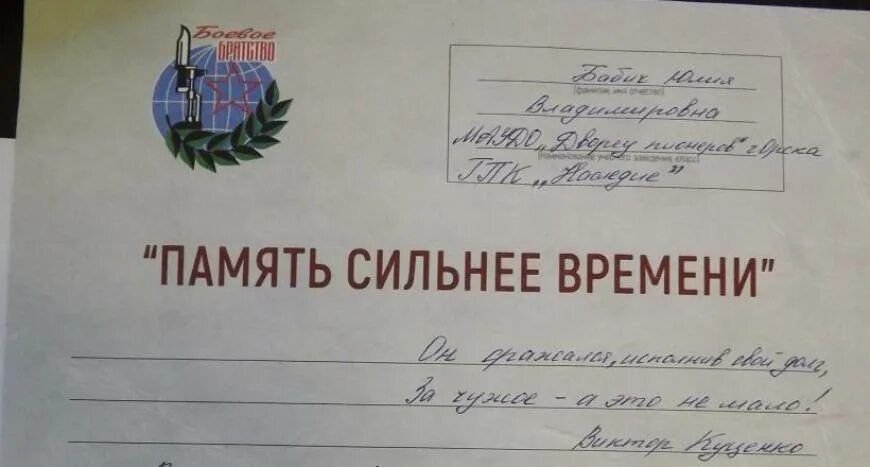 Боевое
БРАТСТВО
Бабич Юлия
(фамилия, имя отчество)
Владимировна
МАУДО „Дворец пионеров" г Орска
(наименование учебного заведения, класс)
ГПК „Наследие"
"ПАМЯТЬ СИЛЬНЕЕ ВРЕМЕНИ"
Он сражался, исполнив свой долг,
За чужое - а это не мало!
Виктор Куценко